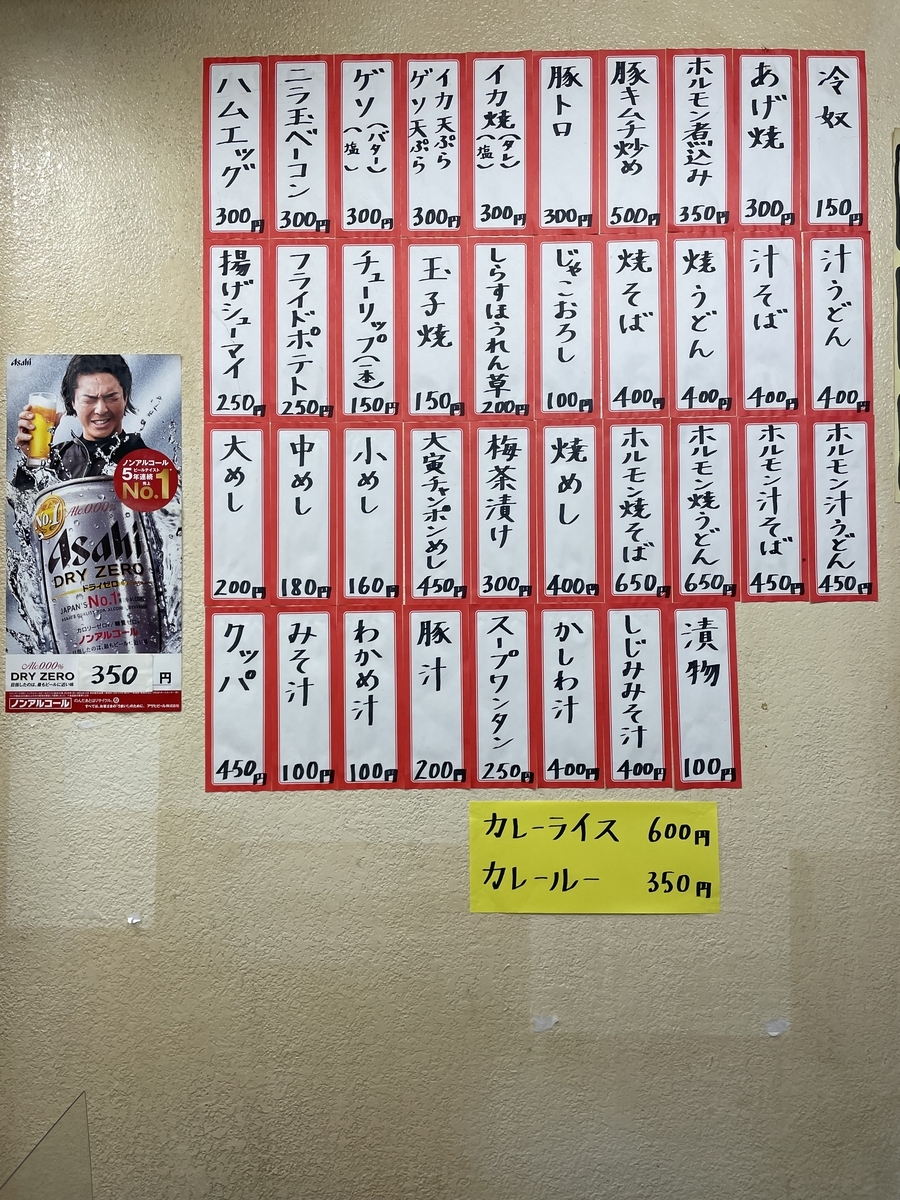 冷奴 150円
あげ焼 300円
ホルモン煮込み 350円
豚キムチ炒め 500円
豚トロ 300円
イカ焼(タレ)(塩) 300円
イカ天ぷら
ゲソ天ぷら 300円
ゲソ(バター)(塩) 300円
ニラ玉ベーコン 300円
ハムエッグ 300円
汁うどん 400円
汁そば 400円
焼うどん 400円
焼そば 400円
じゃこおろし 100円
しらすほうれん草 200円
玉子焼 150円
チューリップ(一本) 150円
フライドポテト 250円
揚げシューマイ 250円
ホルモン汁うどん 450円
ホルモン汁そば 450円
ホルモン焼うどん 650円
ホルモン焼そば 650円
焼めし 400円
梅茶漬け 300円
大寅チャンポンめし 450円
小めし 160円
中めし 180円
大めし 200円
漬物 100円
しじみみそ汁 400円
かしわ汁 400円
スープワンタン 250円
豚汁 200円
わかめ汁 100円
みそ汁 100円
クッパ 450円
カレーライス 600円
カレールー 350円
Asahi
ノンアルコール
ビールテイスト
5年連続
売上
No.1
No.1
Alc.0.00%
Asahi
DRY ZERO
ドライゼロ
JAPAN'S No.1
カロリーゼロ/糖質ゼロ
ノンアルコール
Alc.0.00%
DRY ZERO 350 円
目指したのは、最もビールに近い味
ノンアルコール
のんだあとはリサイクル。
すべては、お客さまの「うまい」のために。 アサヒビール株式会社